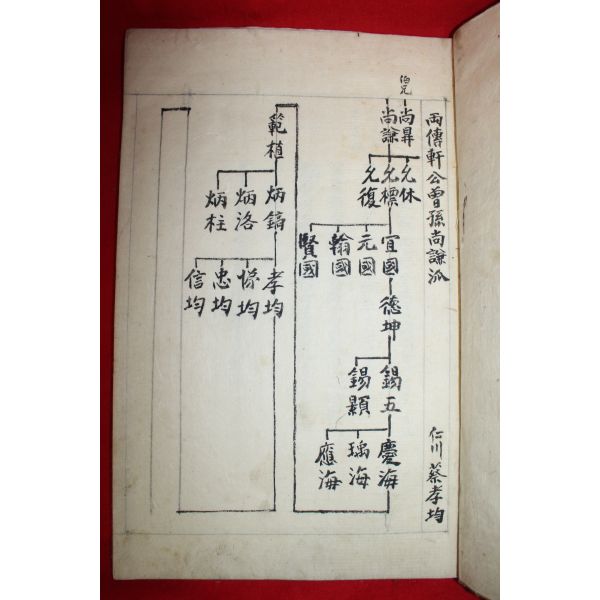 両傳軒公曾孫尚謙派
仁川 蔡孝均
伯兄
尚昇
尚謙
允休
允標
允復
宜國
元國
翰國
賢國
德坤
錫五
錫顯
慶海
瑀海
應海
範植
炳鎬
炳洛
炳柱
孝均
悌均
忠均
信均